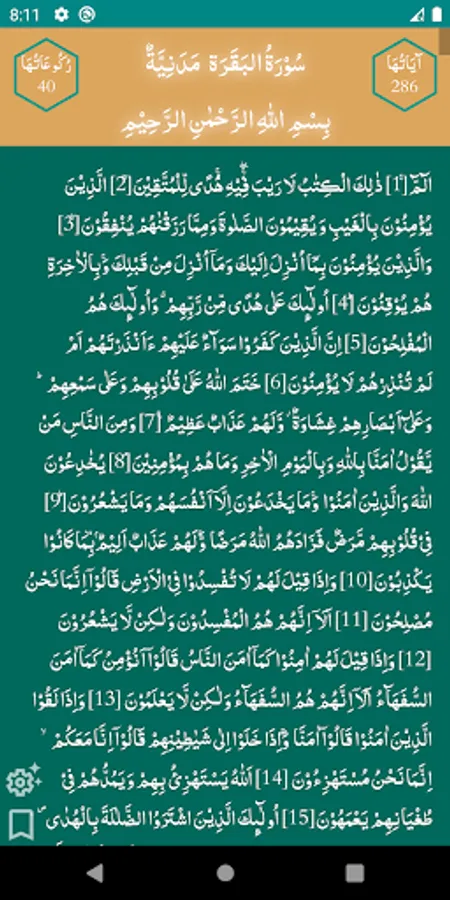 8:11
رُكُوْعَاتُهَا
40
سُوْرَةُ الْبَقَرَةِ مَدَنِيَّةٌ
آيَاتُهَا
286
بِسْمِ اللهِ الرَّحْمٰنِ الرَّحِيْمِ
الٓمّٓ [1] ذٰلِكَ الْكِتٰبُ لَا رَيْبَ فِيْهِ هُدًى لِّلْمُتَّقِيْنَ [2] الَّذِيْنَ
يُؤْمِنُوْنَ بِالْغَيْبِ وَيُقِيْمُوْنَ الصَّلٰوةَ وَمِمَّا رَزَقْنٰهُمْ يُنْفِقُوْنَ [3]
وَالَّذِيْنَ يُؤْمِنُوْنَ بِمَآ اُنْزِلَ اِلَيْكَ وَمَآ اُنْزِلَ مِنْ قَبْلِكَ وَبِالْاٰخِرَةِ
هُمْ يُوْقِنُوْنَ [4] اُولٰٓئِكَ عَلٰى هُدًى مِّنْ رَّبِّهِمْ وَاُولٰٓئِكَ هُمُ
الْمُفْلِحُوْنَ [5] اِنَّ الَّذِيْنَ كَفَرُوْا سَوَآءٌ عَلَيْهِمْ ءَاَنْذَرْتَهُمْ اَمْ
لَمْ تُنْذِرْهُمْ لَا يُؤْمِنُوْنَ [6] خَتَمَ اللهُ عَلٰى قُلُوْبِهِمْ وَعَلٰى سَمْعِهِمْ ؕ
وَعَلٰٓى اَبْصَارِهِمْ غِشَاوَةٌ وَّلَهُمْ عَذَابٌ عَظِيْمٌ [7] وَمِنَ النَّاسِ مَنْ
يَّقُوْلُ اٰمَنَّا بِاللهِ وَبِالْيَوْمِ الْاٰخِرِ وَمَا هُمْ بِمُؤْمِنِيْنَ [8] يُخٰدِعُوْنَ
اللهَ وَالَّذِيْنَ اٰمَنُوْا وَمَا يَخْدَعُوْنَ اِلَّآ اَنْفُسَهُمْ وَمَا يَشْعُرُوْنَ [9]
فِيْ قُلُوْبِهِمْ مَّرَضٌ فَزَادَهُمُ اللهُ مَرَضًا وَلَهُمْ عَذَابٌ اَلِيْمٌ بِمَا كَانُوْا
يَكْذِبُوْنَ [10] وَاِذَا قِيْلَ لَهُمْ لَا تُفْسِدُوْا فِي الْاَرْضِ قَالُوْٓا اِنَّمَا نَحْنُ
مُصْلِحُوْنَ [11] اَلَآ اِنَّهُمْ هُمُ الْمُفْسِدُوْنَ وَلٰكِنْ لَّا يَشْعُرُوْنَ
[12] وَاِذَا قِيْلَ لَهُمْ اٰمِنُوْا كَمَآ اٰمَنَ النَّاسُ قَالُوْٓا اَنُؤْمِنُ كَمَآ اٰمَنَ
السُّفَهَآءُ اَلَآ اِنَّهُمْ هُمُ السُّفَهَآءُ وَلٰكِنْ لَّا يَعْلَمُوْنَ [13] وَاِذَا لَقُوا
الَّذِيْنَ اٰمَنُوْا قَالُوْٓا اٰمَنَّا وَاِذَا خَلَوْا اِلٰى شَيٰطِيْنِهِمْ قَالُوْٓا اِنَّا مَعَكُمْ ۙ
اِنَّمَا نَحْنُ مُسْتَهْزِءُوْنَ [14] اَللهُ يَسْتَهْزِئُ بِهِمْ وَيَمُدُّهُمْ فِيْ
طُغْيَانِهِمْ يَعْمَهُوْنَ [15] اُولٰٓئِكَ الَّذِيْنَ اشْتَرَوُا الضَّلٰلَةَ بِالْهُدٰى